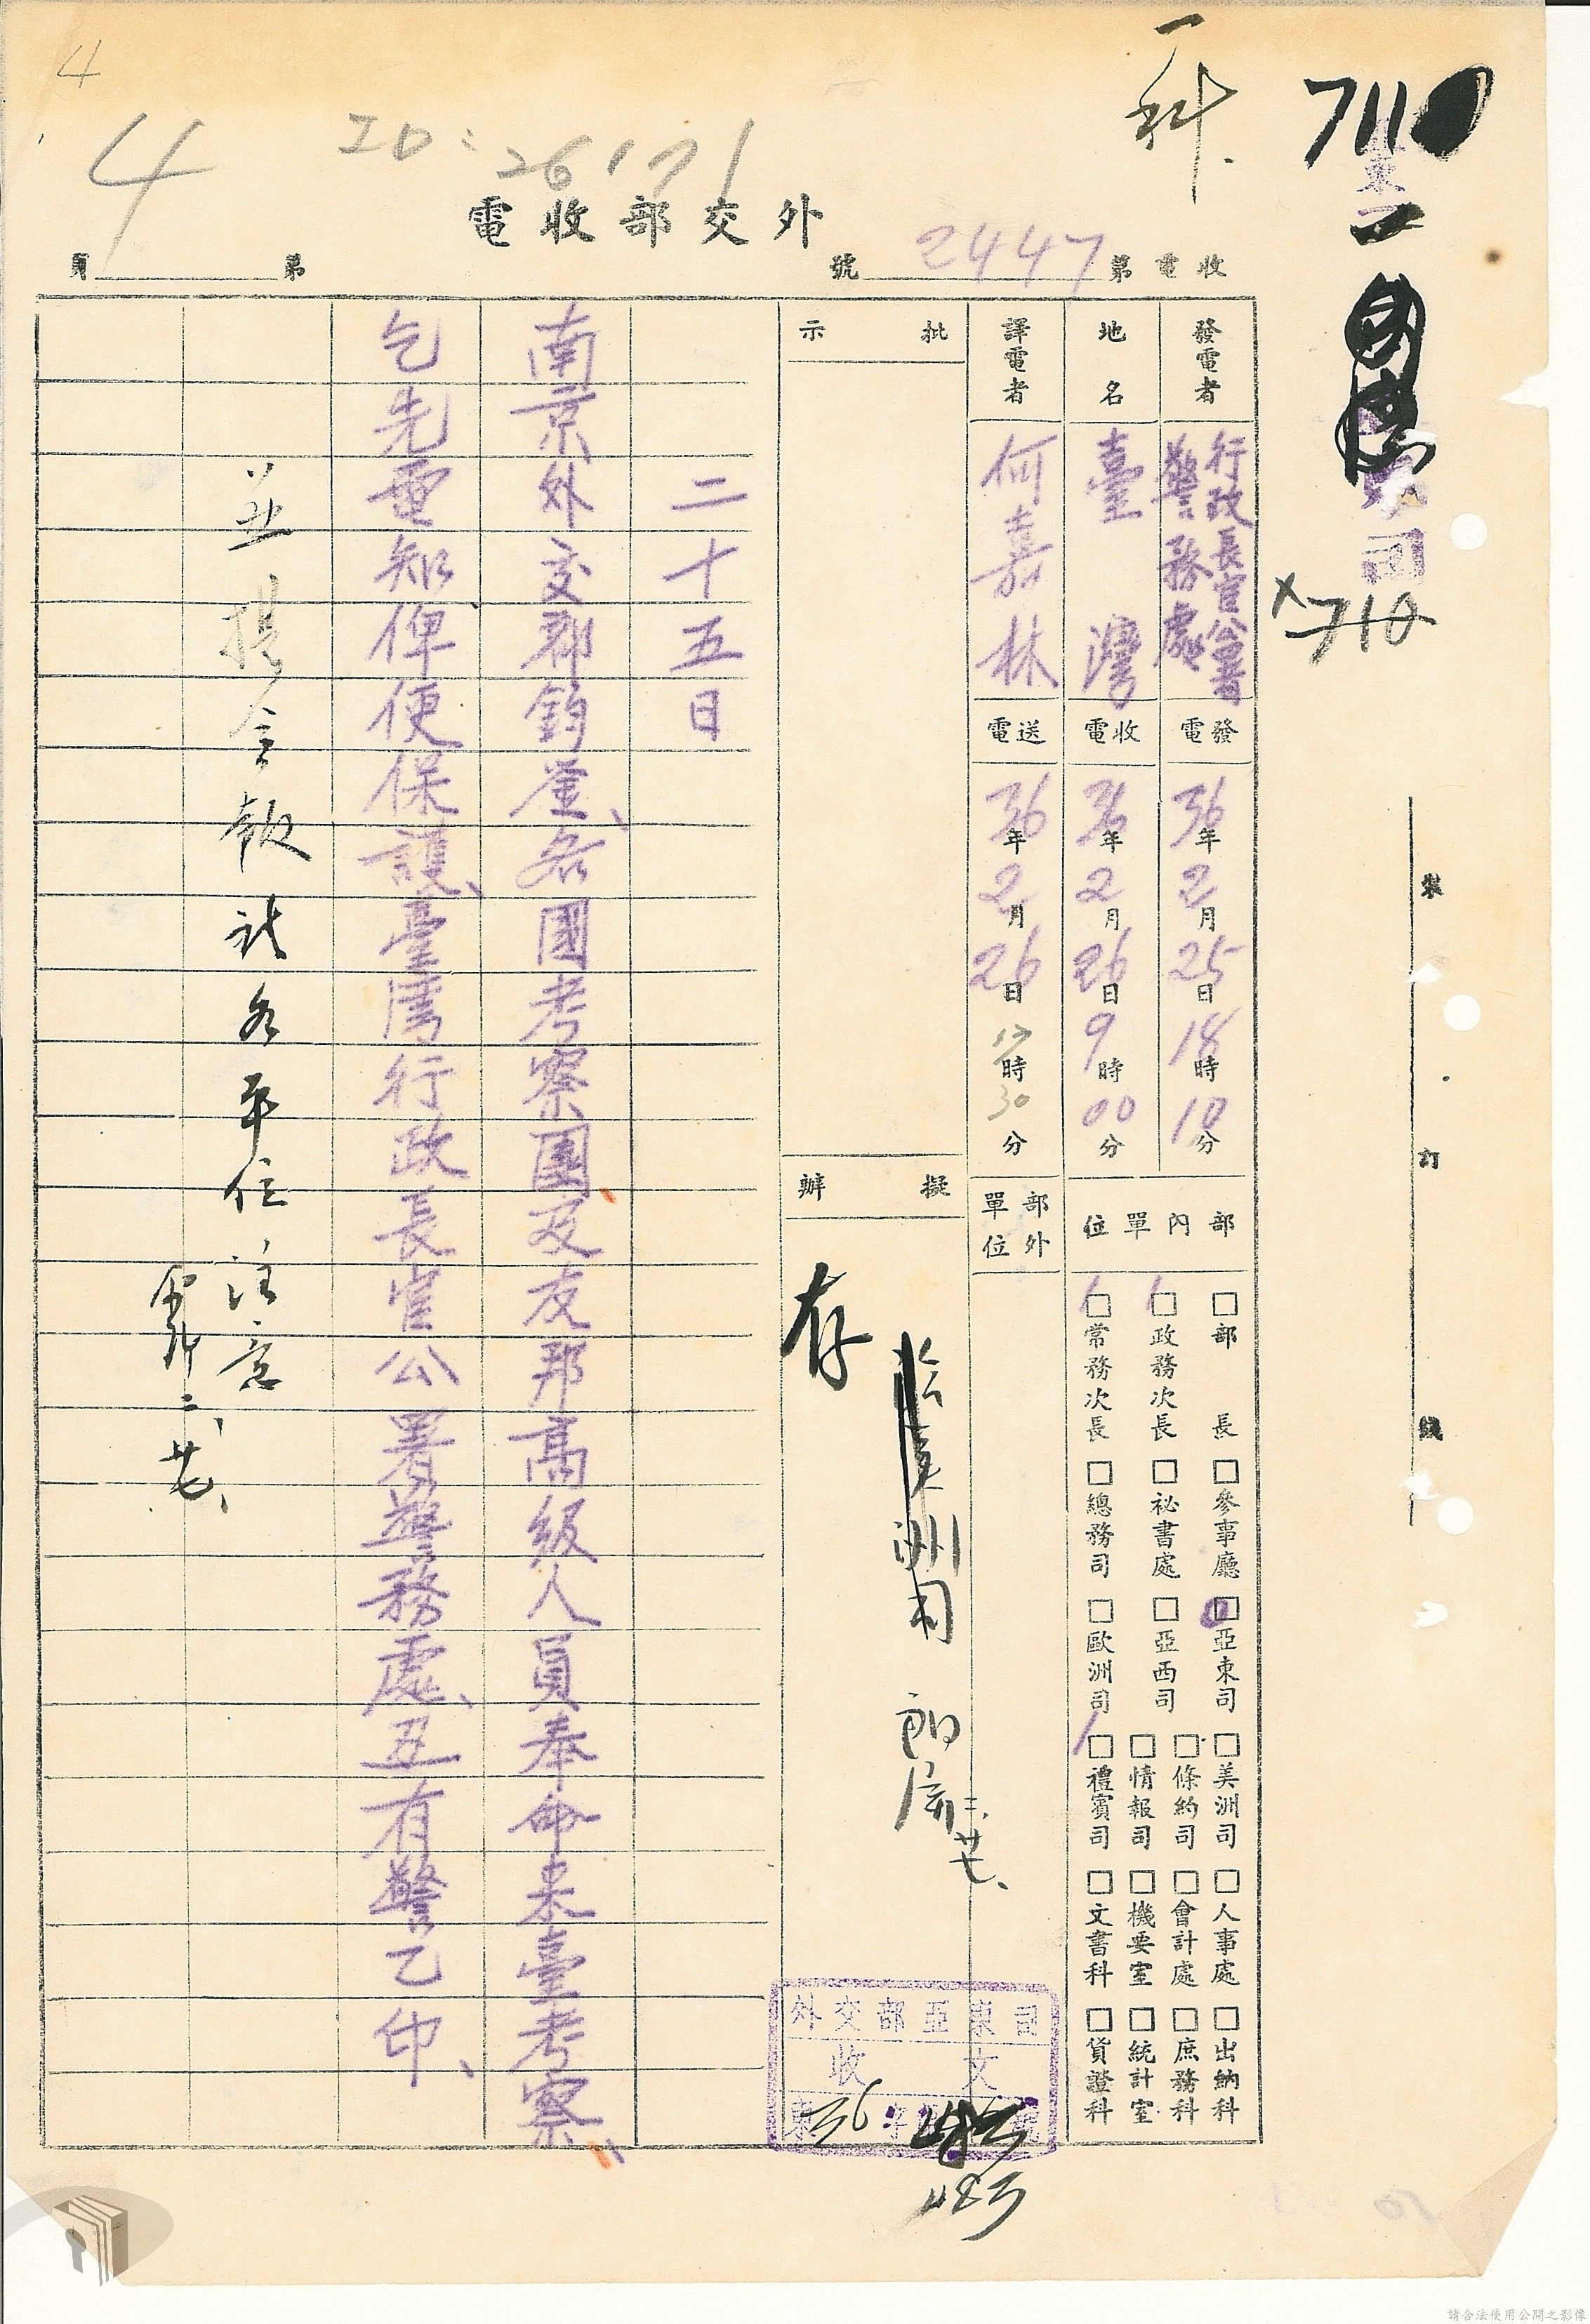 4
4
ID:26171
一科.
711
亞東司
710
外交部收電
收電第2447號
第 頁
發電者
行政長官公署
警務處
發電
36年2月25日18時10分
地名
臺灣
收電
36年2月26日9時00分
譯電者
何嘉林
送電
36年2月26日12時30分
部內單位
□部長 □參事廳 □亞東司 □美洲司 □人事處 □出納科
□政務次長 □祕書處 □亞西司 □條約司 □會計處 □庶務科
□情報司 □機要室 □統計室
□常務次長 □總務司 □歐洲司 □禮賓司 □文書科 □貨證科
部外單位
批示
擬辦
洲司
二、廿七、
存
二十五日
南京外交部鈞鑒、各國考察團及友邦高級人員奉命來臺考察、
乞先電知俾便保護、臺灣行政長官公署警務處、丑有警乙印、
並提會報請各單位注意
二、廿七、
外交部亞東司
收文
東36字第 號
483
裝
訂
線
請合法使用公開之影像